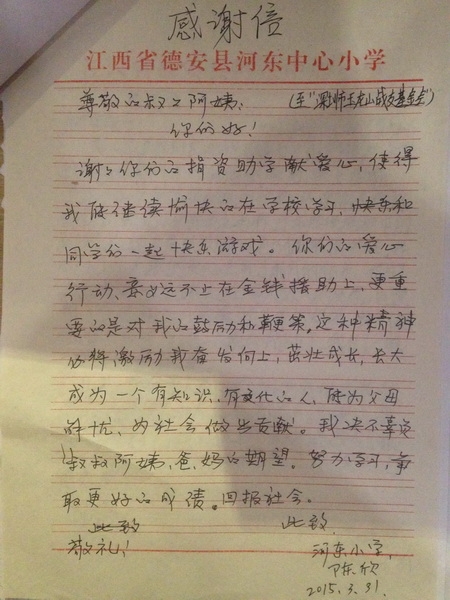 感谢信
江西省德安县河东中心小学
尊敬的叔叔阿姨：
你们好！
谢谢你们的捐资助学献爱心，使得
我能继续愉快的在学校学习，快乐和
同学们一起快乐游戏。你们的爱心
行动、意义远不止在金钱援助上，更重
要的是对我的鼓励和鞭策。这种精神
必将激励我奋发向上，茁壮成长，长大
成为一个有知识，有文化的人，能为父母
解忧、为社会做出贡献。我决不辜负
叔叔阿姨，爸、妈的期望。努力学习，争
取更好的成绩。回报社会。
此致 此致
敬礼！ 河东小学，
陈欣
2015.3.31.